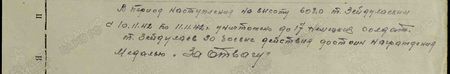 В период наступления на высоту 6030 т. Зейдулаевым
с 10.11.42 по 11.11.42г уничтожено до 17 немецких солдат.
т. Зейдулаев за боевые действия достоин награждения
медалью "За Отвагу"